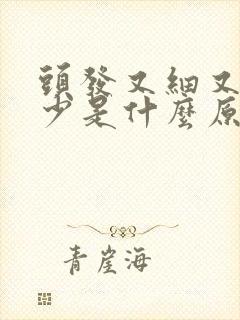 頭發又細又
少是什麼原
青崖海